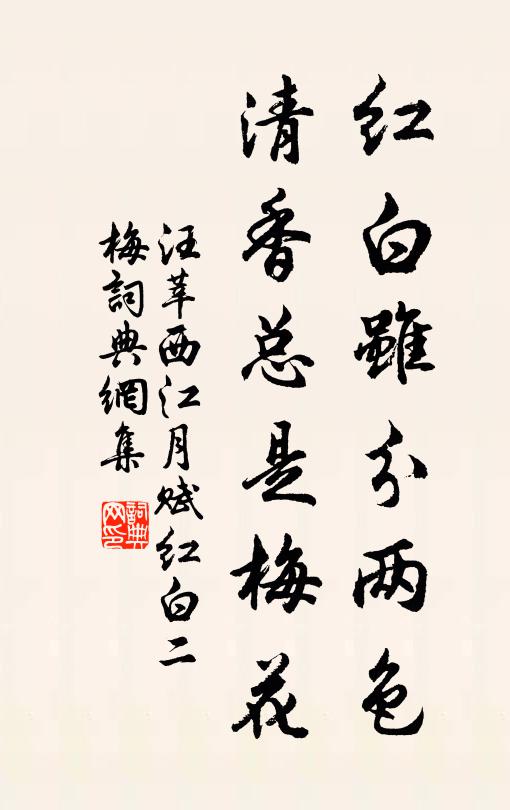 红白雖分两色
清香总是梅花
汪莘西江月赋红白二
梅詞典網集
詞典网印